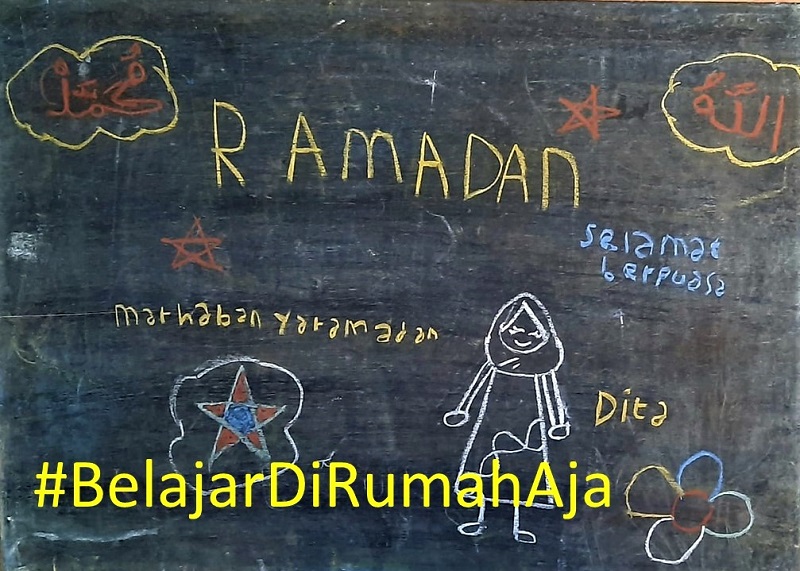 مُحَمَّدْ
اللّهُ
RAMADAN
selamat
berpuasa
marhaban yaramadan
Dita
#BelajarDiRumahAja